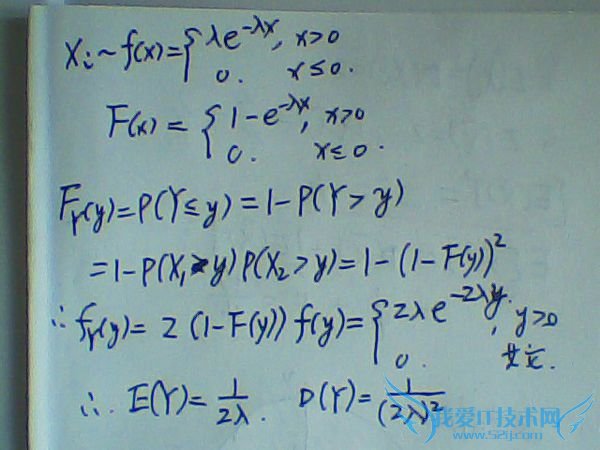 Xᵢ~f(x)={λe^{-λx}, x>0
0. x≤0.
F(x)={1-e^{-λx}, x>0
0. x≤0.
F_Y(y)=P(Y≤y)=1-P(Y>y)
=1-P(X₁>y)P(X₂>y)=1-(1-F(y))²
∴f_Y(y)=2(1-F(y))f(y)={2λe^{-2λy}, y>0
0. 其它.
∴. E(Y)=1/2λ. D(Y)=1/(2λ)²
我爱IT技术网
www.52ij.com